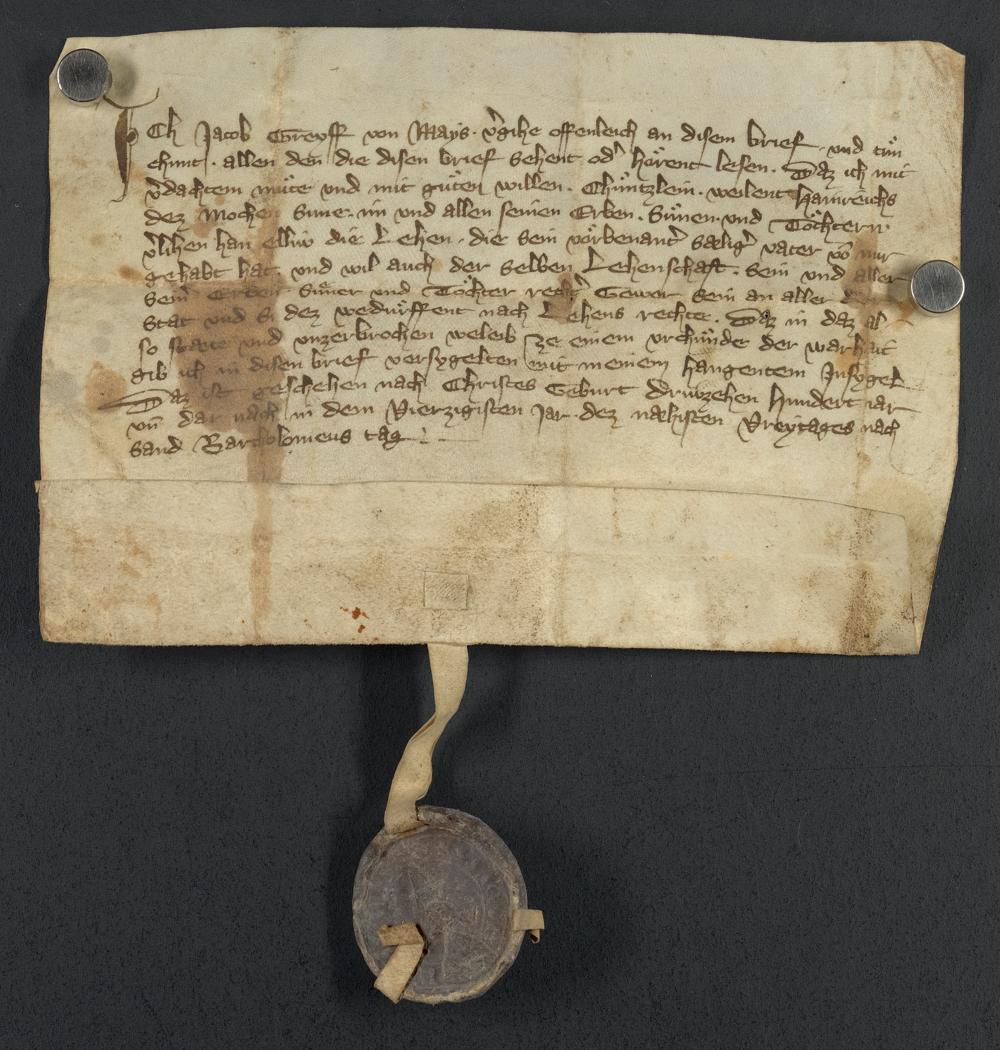 Ich Jacob Greyff von Mays. v͛gihe offenleich an disem brief. und tuͤn
chunt. allen den die disen brief sehent od͛ hoͤrent lesen. Daz ich mit
v͛dachtem muͤte und mit guͤten willen. Chuͤntzlein. weilent Hainreichs
dez Mochen Sune. im und allen seinen Erben. Suͤnen. und Toͤchtern
v͛lihen han elliv die Lehen. die sein vorbenant͛ sælig͛ vater vō mir
gehabt hat. und wil auch der selben Lehenschaft. sein und aller
seiner Erben Suͤner und Toͤchter recht͛ Gewer sein an aller
stat und Si dez weduͤrffent nach Lehens rechte. Daz in daz al
so stæte und unzerbrochen weleib ze einem urchuͤnde der warhait
gib ich in disen brief versygelten mit meinem hangentem Insygel
Daz ist geschehen nach Christes Geburt Driuzehen Hundert iar
un̄ dar nach in dem Vierzigisten Jar. dez næhisten Vreytages nach
Sand Bartholomeus tag